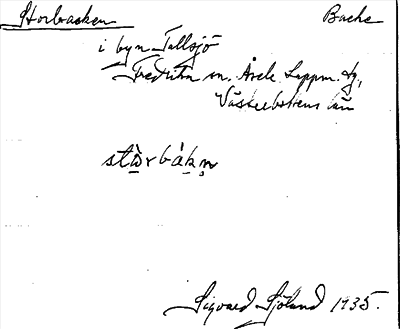 Storbacken Backe
i byn Tallsjö
Fredrika sn. Åsele Lappm. tg,
Västerbottens län
stὼrbákn̥
Sigvard Sjöland 1935.